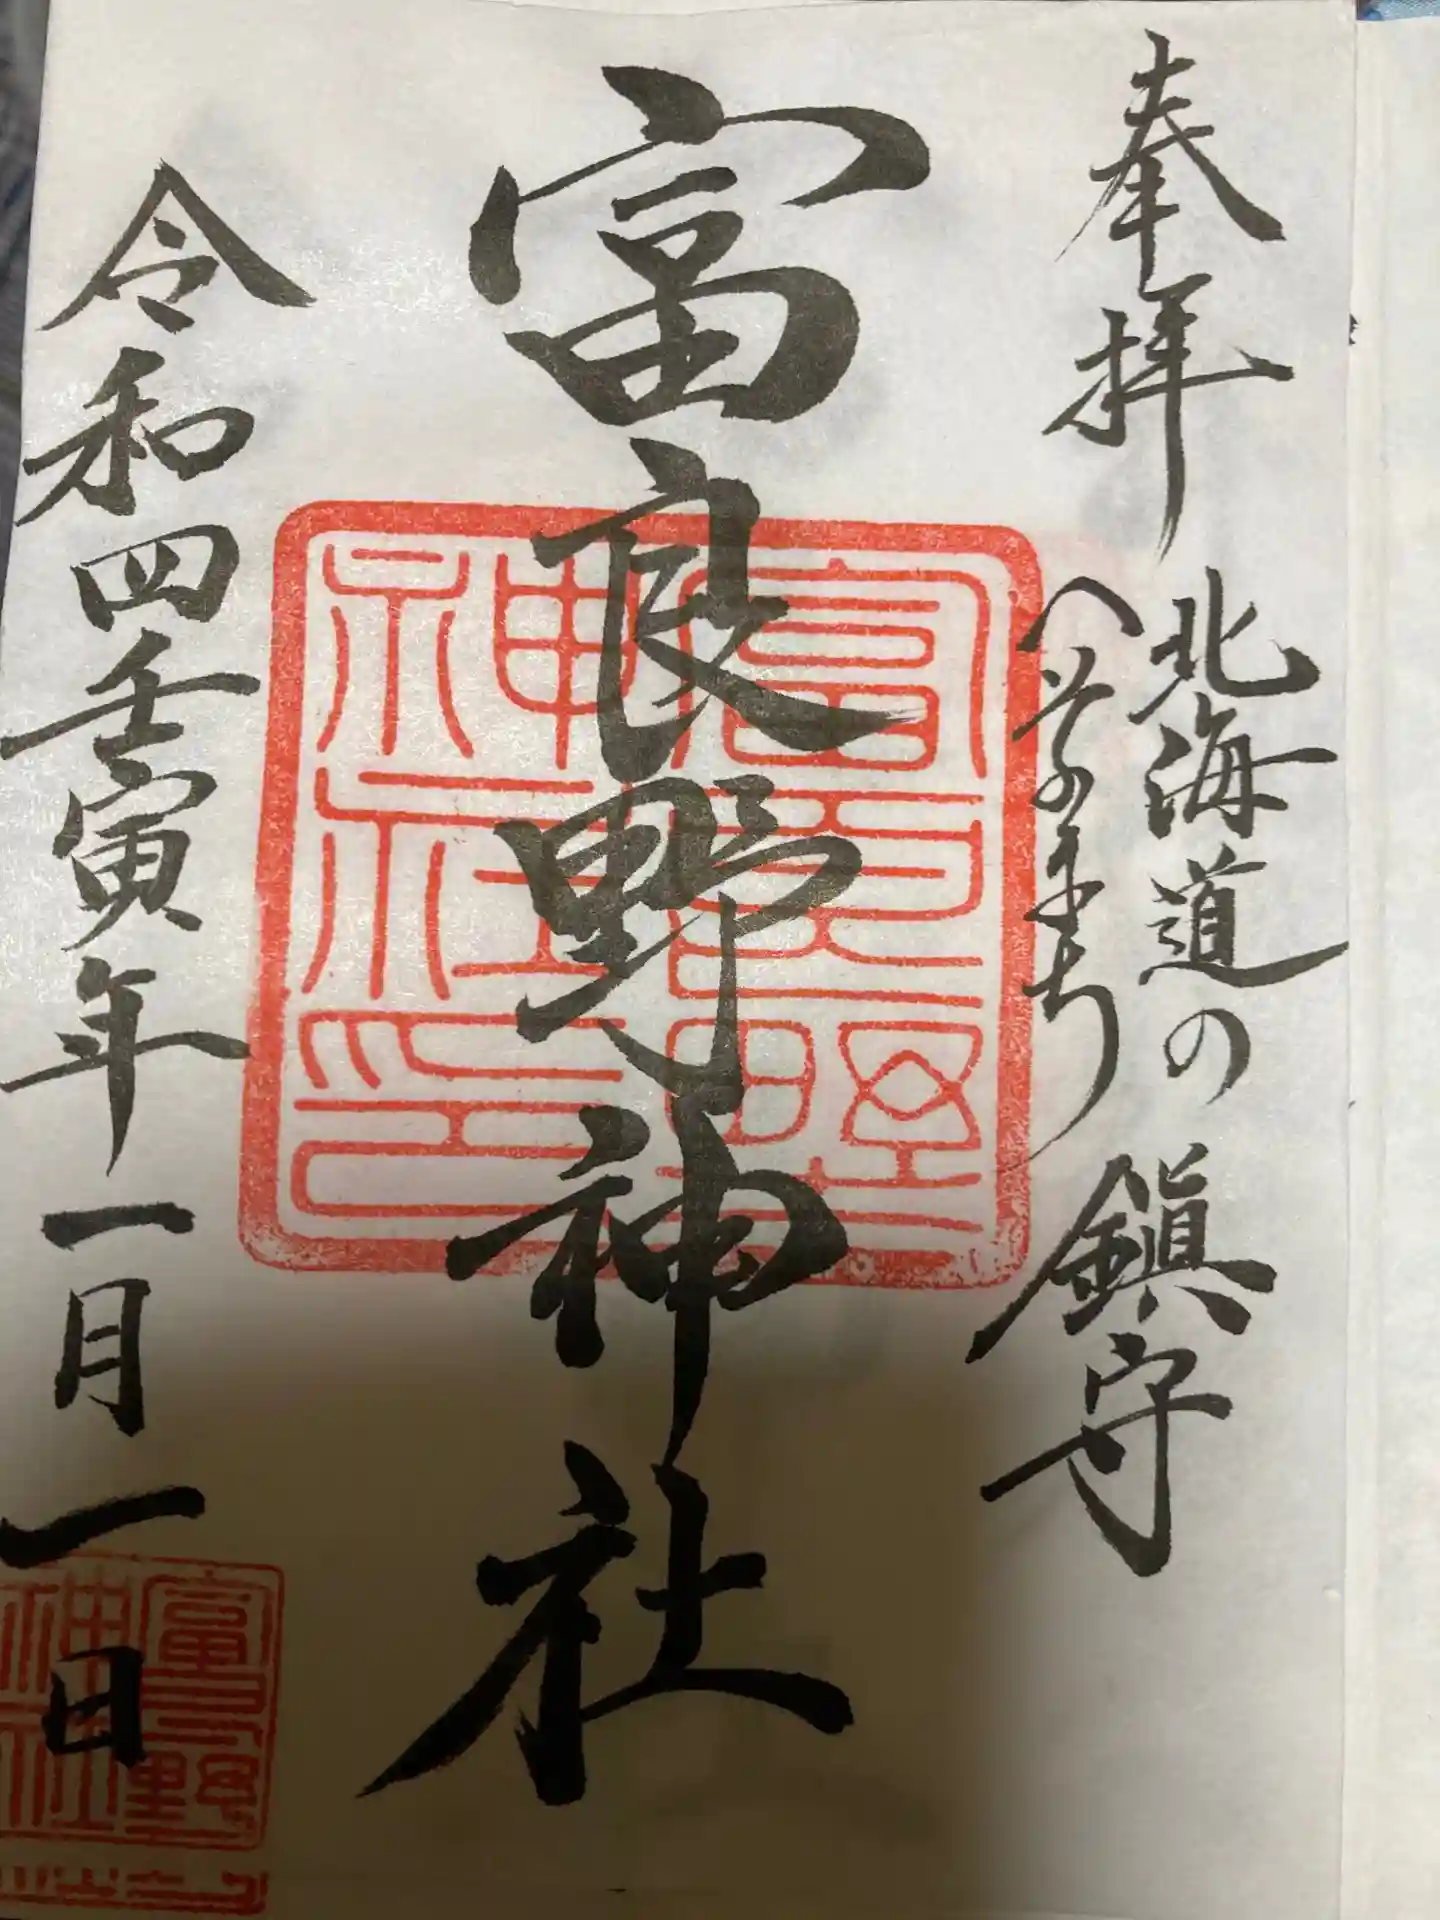 奉拝
北海道の
へそのまち
鎮守
富良野神社
富良野神社印
令和四壬寅年一月一日
富良野
神社